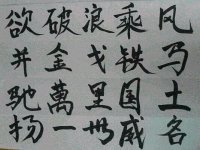 欲破浪乘风
并金戈铁马
驰萬里国土
扬一世威名